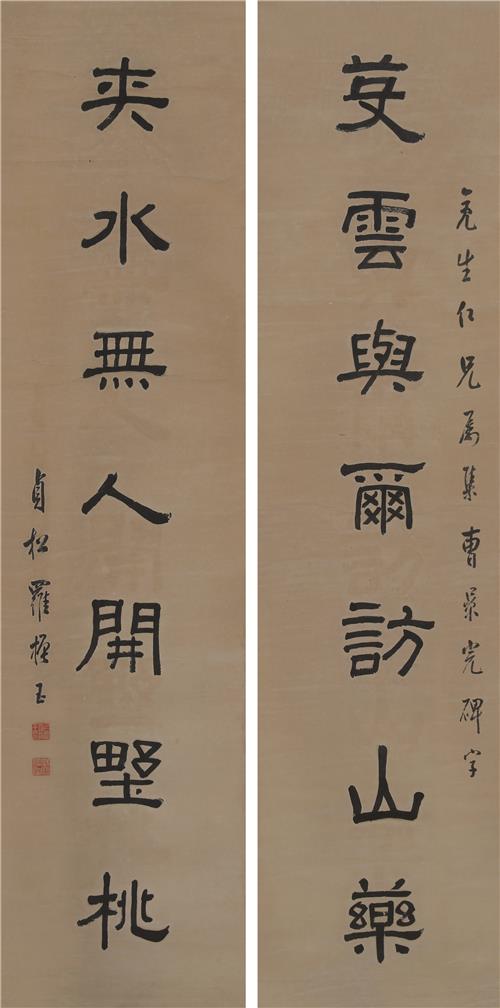 亮生仁兄屬集曹景完碑字
芟雲與爾訪山藥
夾水無人開野桃
貞松羅振玉